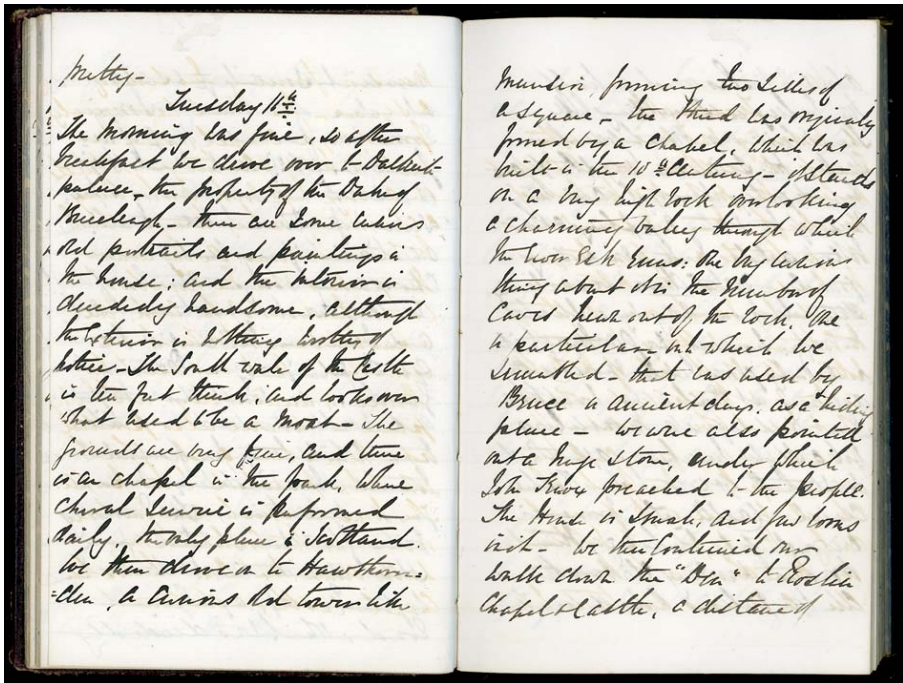 pretty –
Tuesday 16th.
The morning was fine, so after
breakfast we drove over to Dalkeith
palace, the property of the Duke of
Buccleugh – there are some curious
old portraits and paintings in
the house; and the interior is
decidedly handsome, although
the Exterior is nothing worthy of
notice – The South wall of the Castle
is ten feet thick, and looks over
what used to be a moat – The
grounds are very fine, and there
is a chapel in the park, where
Choral Service is performed
daily, the only place in Scotland.
We then drove on to Hawthorn=
=den, a curious old tower with
mansion, forming two sides of
a square – the third was originally
formed by a Chapel, which was
built in the 10th Century – it stands
on a very high rock overlooking
a charming valley through which
the river Esk runs: one very curious
thing about it is the number of
Caves hewn out of the rock, one
in particular which we
scrambled – that was used by
Bruce in ancient days, as a hiding
place – we were also pointed
out a huge stone, under which
John Knox preached to the people.
The House is small, and few rooms
in it – We then continued our
walk down the "Den" to Roslin
Chapel & Castle, a distance of